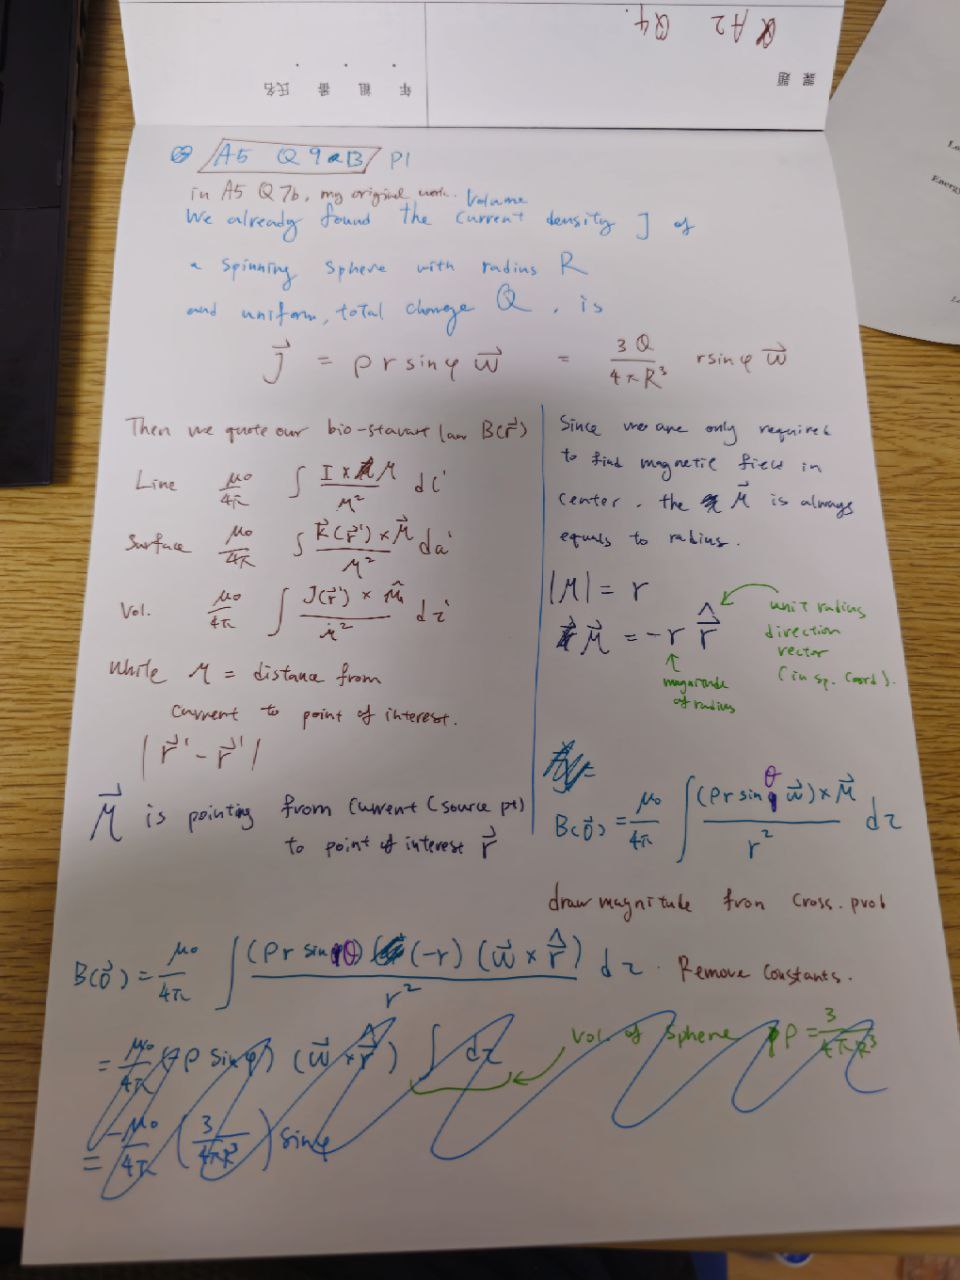 A2 Q4.
課題
年 組 番 氏名
A5 Q9aB P1
in A5 Q7b, my original work.
We already found the Volume current density J of
a spinning sphere with radius R
and uniform, total charge Q, is
J⃗ = ρ r sinφ ω⃗ = 3Q/4πR³ r sinφ ω⃗
Then we quote our bio-stavart law B(r⃗)
Line μ₀/4π ∫ I × 𝓇/𝓇² dl'
Surface μ₀/4π ∫ K⃗(r⃗') × 𝓇⃗/𝓇² da'
Vol. μ₀/4π ∫ J(r⃗') × 𝓇̂/𝓇² dτ'
while 𝓇 = distance from
current to point of interest.
|r⃗' - r⃗'|
𝓇⃗ is pointing from current (source pt)
to point of interest r⃗
Since we are only required
to find magnetic field in
center, the 𝓇⃗ is always
equals to radius.
|𝓇| = r
𝓇⃗ = -r r̂
unit radius
direction
vector
(in sp. coord).
magnitude
of radius
B(0⃗) = μ₀/4π ∫ (ρ r sinθ ω⃗) × 𝓇⃗/r² dτ
draw magnitude from cross. prod
B(0⃗) = μ₀/4π ∫ (ρ r sinθ) (-r) (ω⃗ × r̂)/r² dτ. Remove constants.
= μ₀/4π (-ρ sinφ) (ω⃗ × r̂) ∫ dτ
vol. of sphere ρ = 3/4πR³
= -μ₀/4π (3/4πR³) sinφ